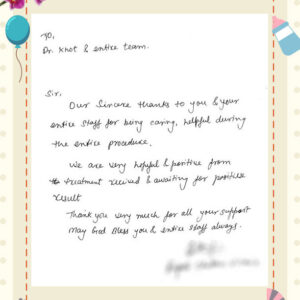 To,
Dr. Khot & entire team.
Sir,
Our sincere thanks to you & your
entire staff for being caring, helpful during
the entire procedure.
We are very hopeful & positive from
treatment recived & awaiting for positive
result
Thank you very much for all your support
May God Bless you & entire staff always.